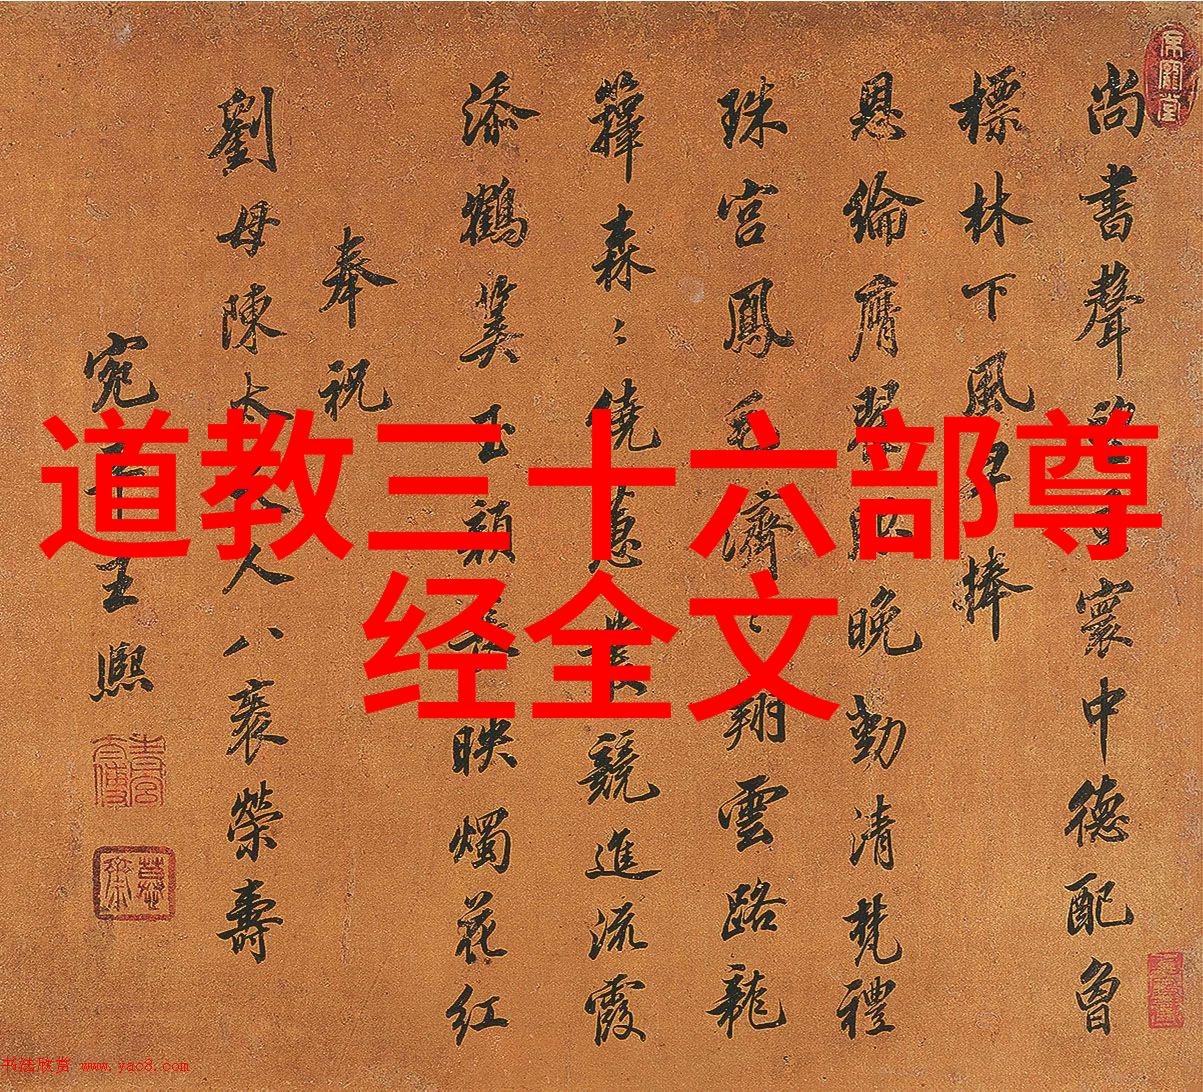 道教三十六部尊
经全文
尚書聲寰中德配魯
標林下風捧
恩綸膺晚勤清梵禮
珠宮鳳毛濟翔雲路龍
籜森〻繞蕙競進流霞
添鶴筭玉顏映燭花红
奉祝
劉母陳太人八袠榮壽
宛平王熈
书法欣赏 www.yac8.com